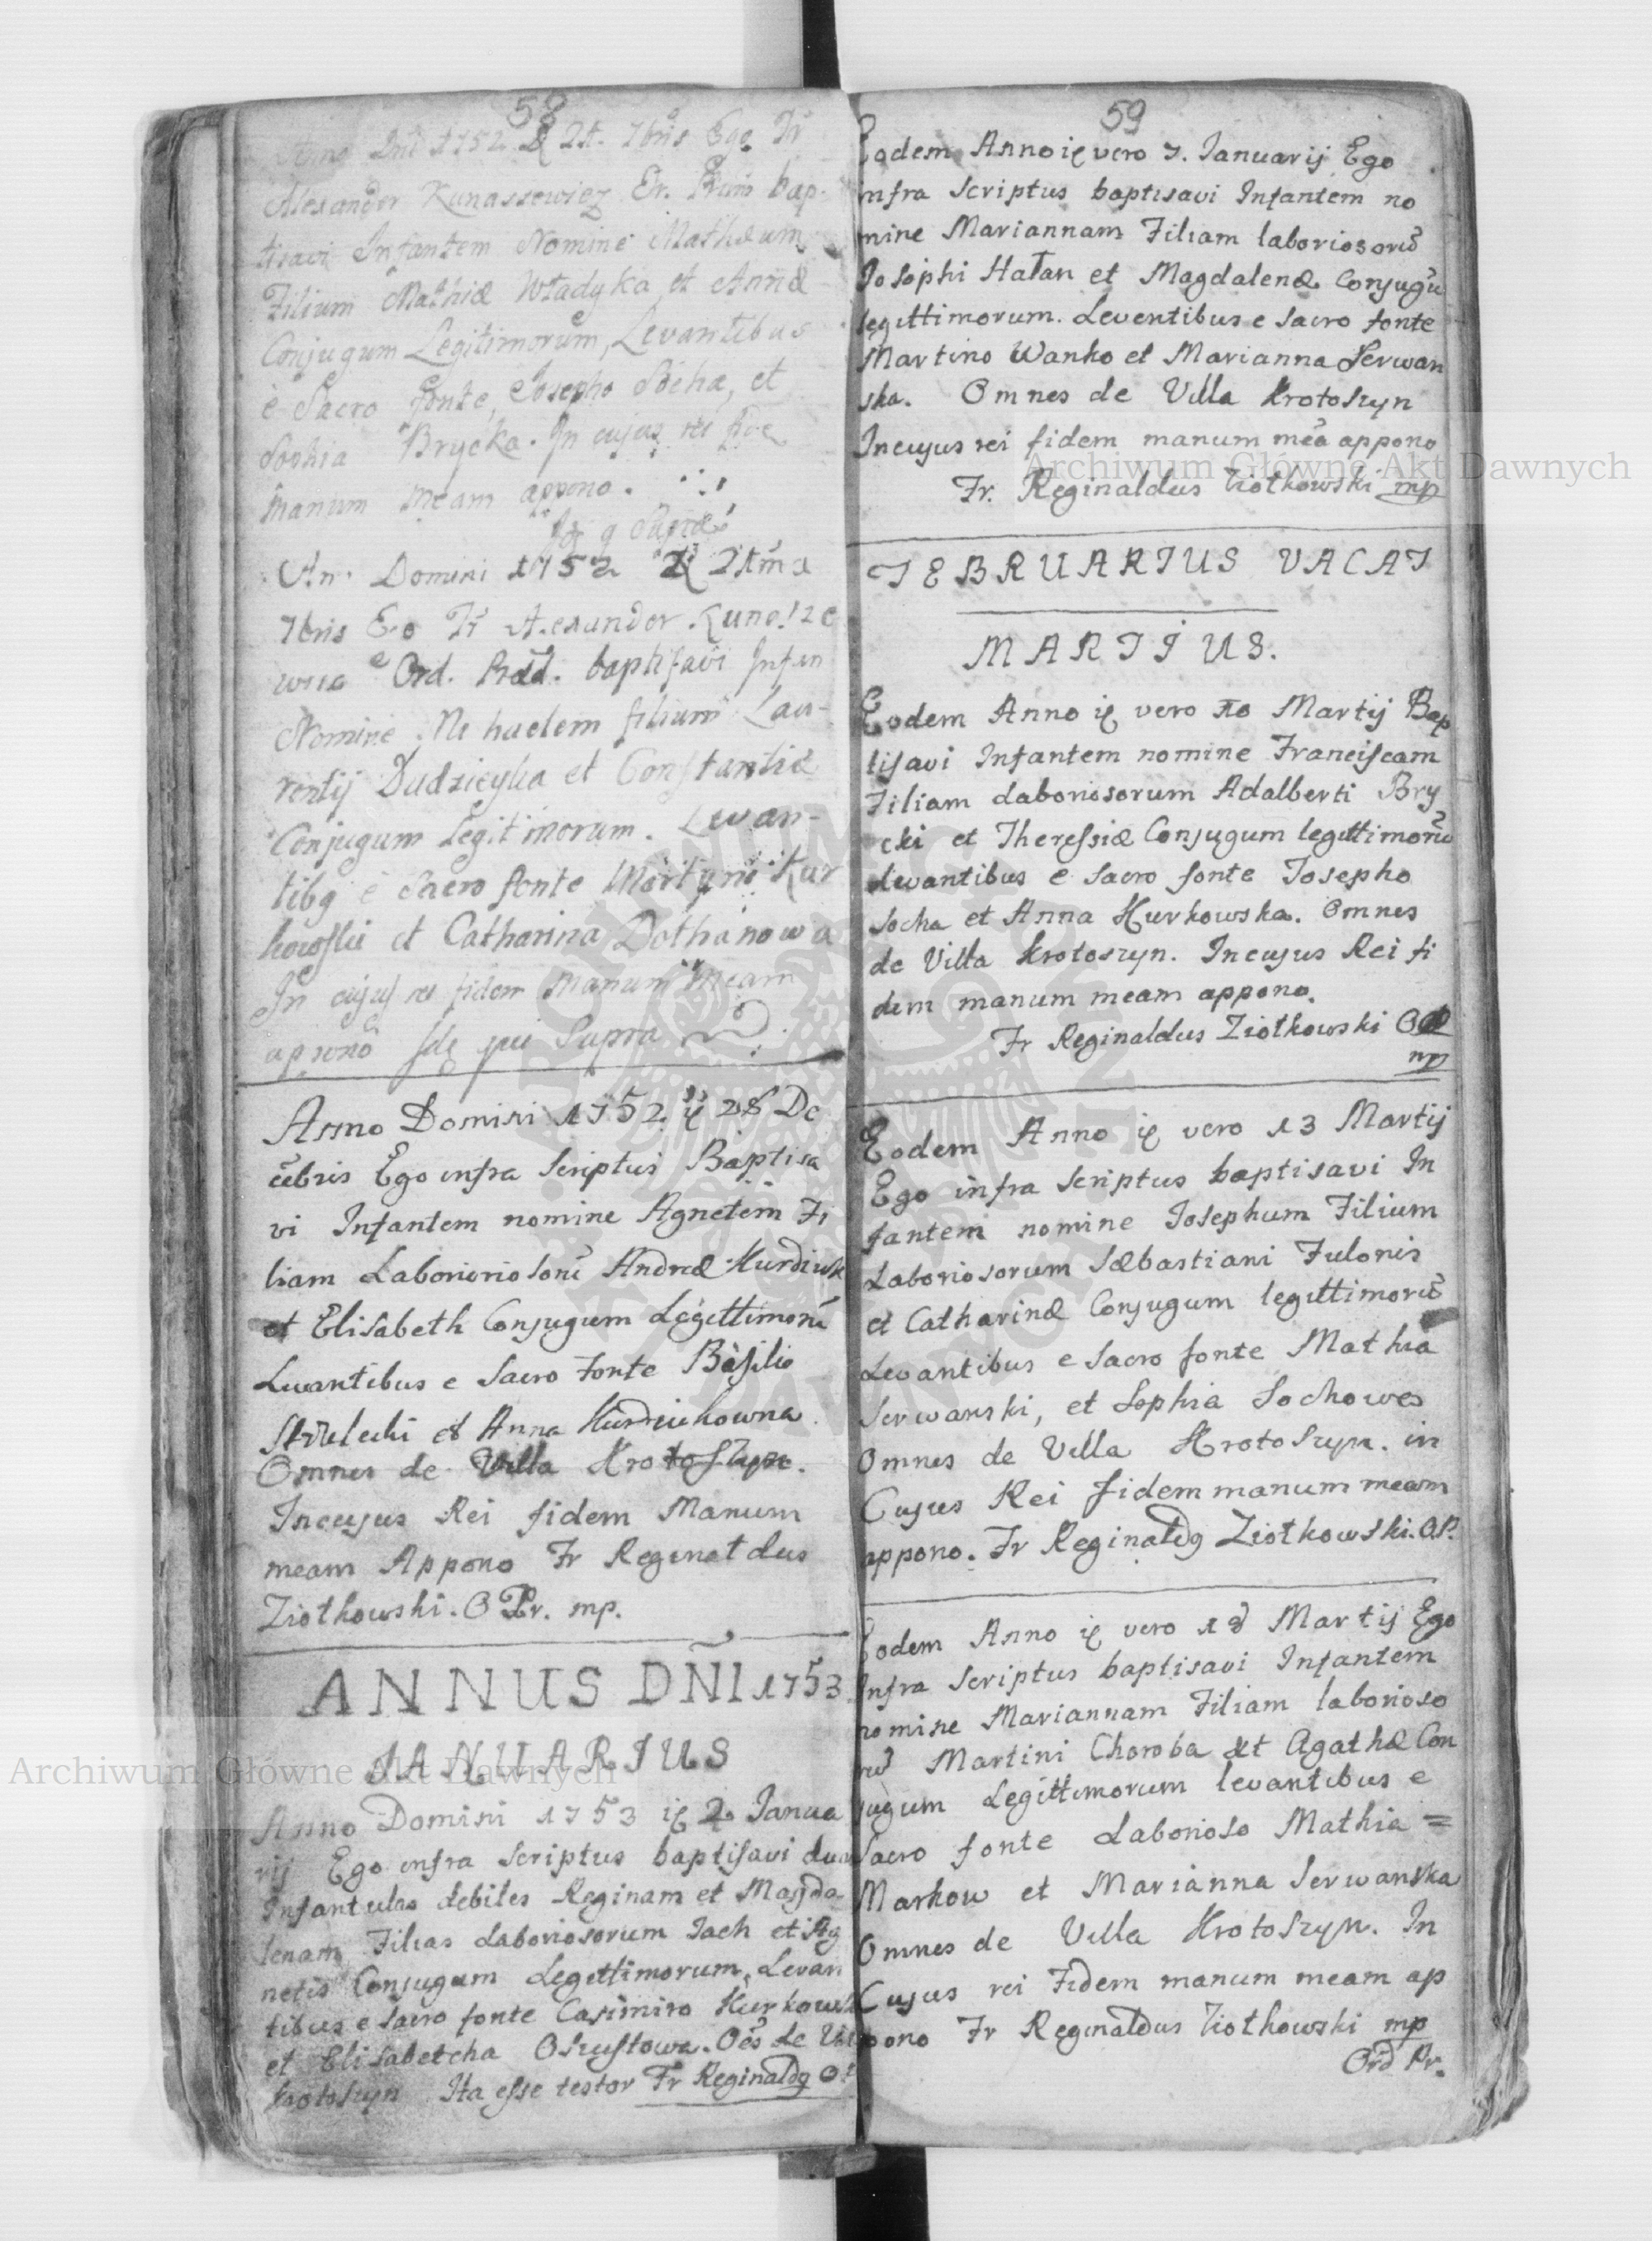 58
Anno Dni 1752 21. 7bris Ego Fr
Alexander Kunassewicz Or. Præd bap-
tisavi Infantem Nomine Mathæum
Filium Mathiæ Władyka et Annæ
Conjugum Legitimorum, Levantibus
è Sacro fonte, Josepho Socha, et
Sophia Brycka. In cujus rei fidē
manum meam appono.
Idē q Supra
An. Domini 1752
7bris Ego Fr Alexander
Ord. Præd. baptisavi Infan
Nomine Michaelem filium Lau-
rentij Dudzicyka et Constantiæ
Conjugum Legitimorum. Levan-
tibq è Sacro fonte Martyno Kur
kowski et Catharina Dothanowa
In cujus rei fidem Manum Meam
appono Idē qui Supra
Anno Domini 1752 28 De
cēbris Ego infra Scriptus Baptisa
vi Infantem nomine Agnetem Fi
liam Laborioriosorū Andreæ Kurdziuk
et Elisabeth Conjugum Legittimorū
Levantibus e Sacro Fonte Basilio
Strzelecki et Anna Kurdziukowna
Omnes de Villa Krotoszyn.
Incujus Rei fidem Manum
meam Appono Fr Reginaldus
Ziołkowski. O Pr. mp.
ANNUS DÑI 1753
JANUARIUS
Anno Domini 1753 2 Janua
rij Ego infra Scriptus baptisavi duas
Infantulas debiles Reginam et Magda
lenam Filias Laboriosorum Jach et Ag
netis Conjugum Legittimorum, Levan
tibus e Sacro fonte Casimiro Kurkowsk
et Elisabetcha Oszustowa. Oēs de Vil
Krotoszyn Ita esse testor Fr Reginaldq OP
59
Eodem Anno vero 7. Januarij Ego
infra Scriptus baptisavi Infantem no
mine Mariannam Filiam laboriosorū
Josephi Hałan et Magdalenæ Conjugū
legittimorum. Leventibus e Sacro fonte
Martino Wanko et Marianna Serwan
ska. Omnes de Villa Krotoszyn
Incujus rei fidem manum meā appono
Fr. Reginaldus Ziołkowski mp
FEBRUARIUS VACAT
MARTIUS.
Eodem Anno vero 10 Martij Bap
tisavi Infantem nomine Franciscam
Filiam Laboriosorum Adalberti Bry
cki et Theressiæ Conjugum legittimorū
Levantibus e Sacro fonte Josepho
Socha et Anna Kurkowska. Omnes
de Villa Krotoszyn. Incujus Rei fi
dem manum meam appono.
Fr Reginaldus Ziołkowski OP
mp
Eodem Anno vero 13 Martij
Ego infra Scriptus baptisavi In
fantem nomine Josephum Filium
Laboriosorum Sæbastiani Fulonis
et Catharinæ Conjugum legittimorū
Levantibus e Sacro fonte Mathia
Serwanski, et Sophia Sochowa
Omnes de Villa Krotoszyn. in
Cujus Rei fidem manum meam
appono. Fr Reginaldq Ziołkowski. O.P.
Eodem Anno vero 18 Martij Ego
Infra Scriptus baptisavi Infantem
nomine Mariannam Filiam laborioso
rū Martini Choroba et Agathæ Con
jugum Legittimorum levantibus e
Sacro fonte Laborioso Mathia =
Markow et Marianna Serwanska
Omnes de Villa Krotoszyn. In
Cujus rei Fidem manum meam ap
pono Fr Reginaldus Ziołkowski mp
Ord Pr.
Archiwum Główne Akt Dawnych
Archiwum Główne Akt Dawnych